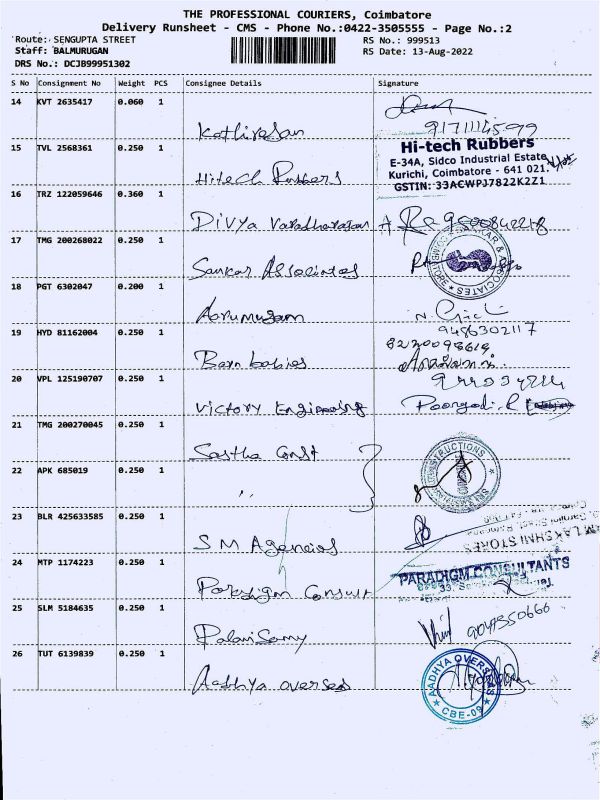 THE PROFESSIONAL COURIERS, Coimbatore
Delivery Runsheet - CMS - Phone No.:0422-3505555 - Page No.:2
Route: SENGUPTA STREET
RS No.: 999513
Staff: BALMURUGAN
RS Date: 13-Aug-2022
DRS No.: DCJB99951302
S No Consignment No Weight PCS Consignee Details Signature
14 KVT 2635417 0.060 1
Kathiresan
9171114599
15 TVL 2568361 0.250 1
Hitech Rubbers
Hi-tech Rubbers
E-34A, Sidco Industrial Estate,
Kurichi, Coimbatore - 641 021.
GSTIN: 33ACWPJ7822K2Z1
16 TRZ 122059646 0.360 1
Divya Varadharasan
17 TMG 200268022 0.250 1
Sankar Associates
18 PGT 6302047 0.200 1
Aarumugam
9486302117
19 HYD 81162004 0.250 1
Barn babies
20 VPL 125190707 0.250 1
Victory Engineering
21 TMG 200270045 0.250 1
Sastha Const
22 APK 685019 0.250 1
"
23 BLR 425633585 0.250 1
S M Agencies
LAKSHMI STORES
24 MTP 1174223 0.250 1
Paradigm Consult
PARADIGM CONSULTANTS
25 SLM 5184635 0.250 1
PalaniSamy
26 TUT 6139839 0.250 1
Aadhya overseas
AADHYA OVERSEAS
CBE-09